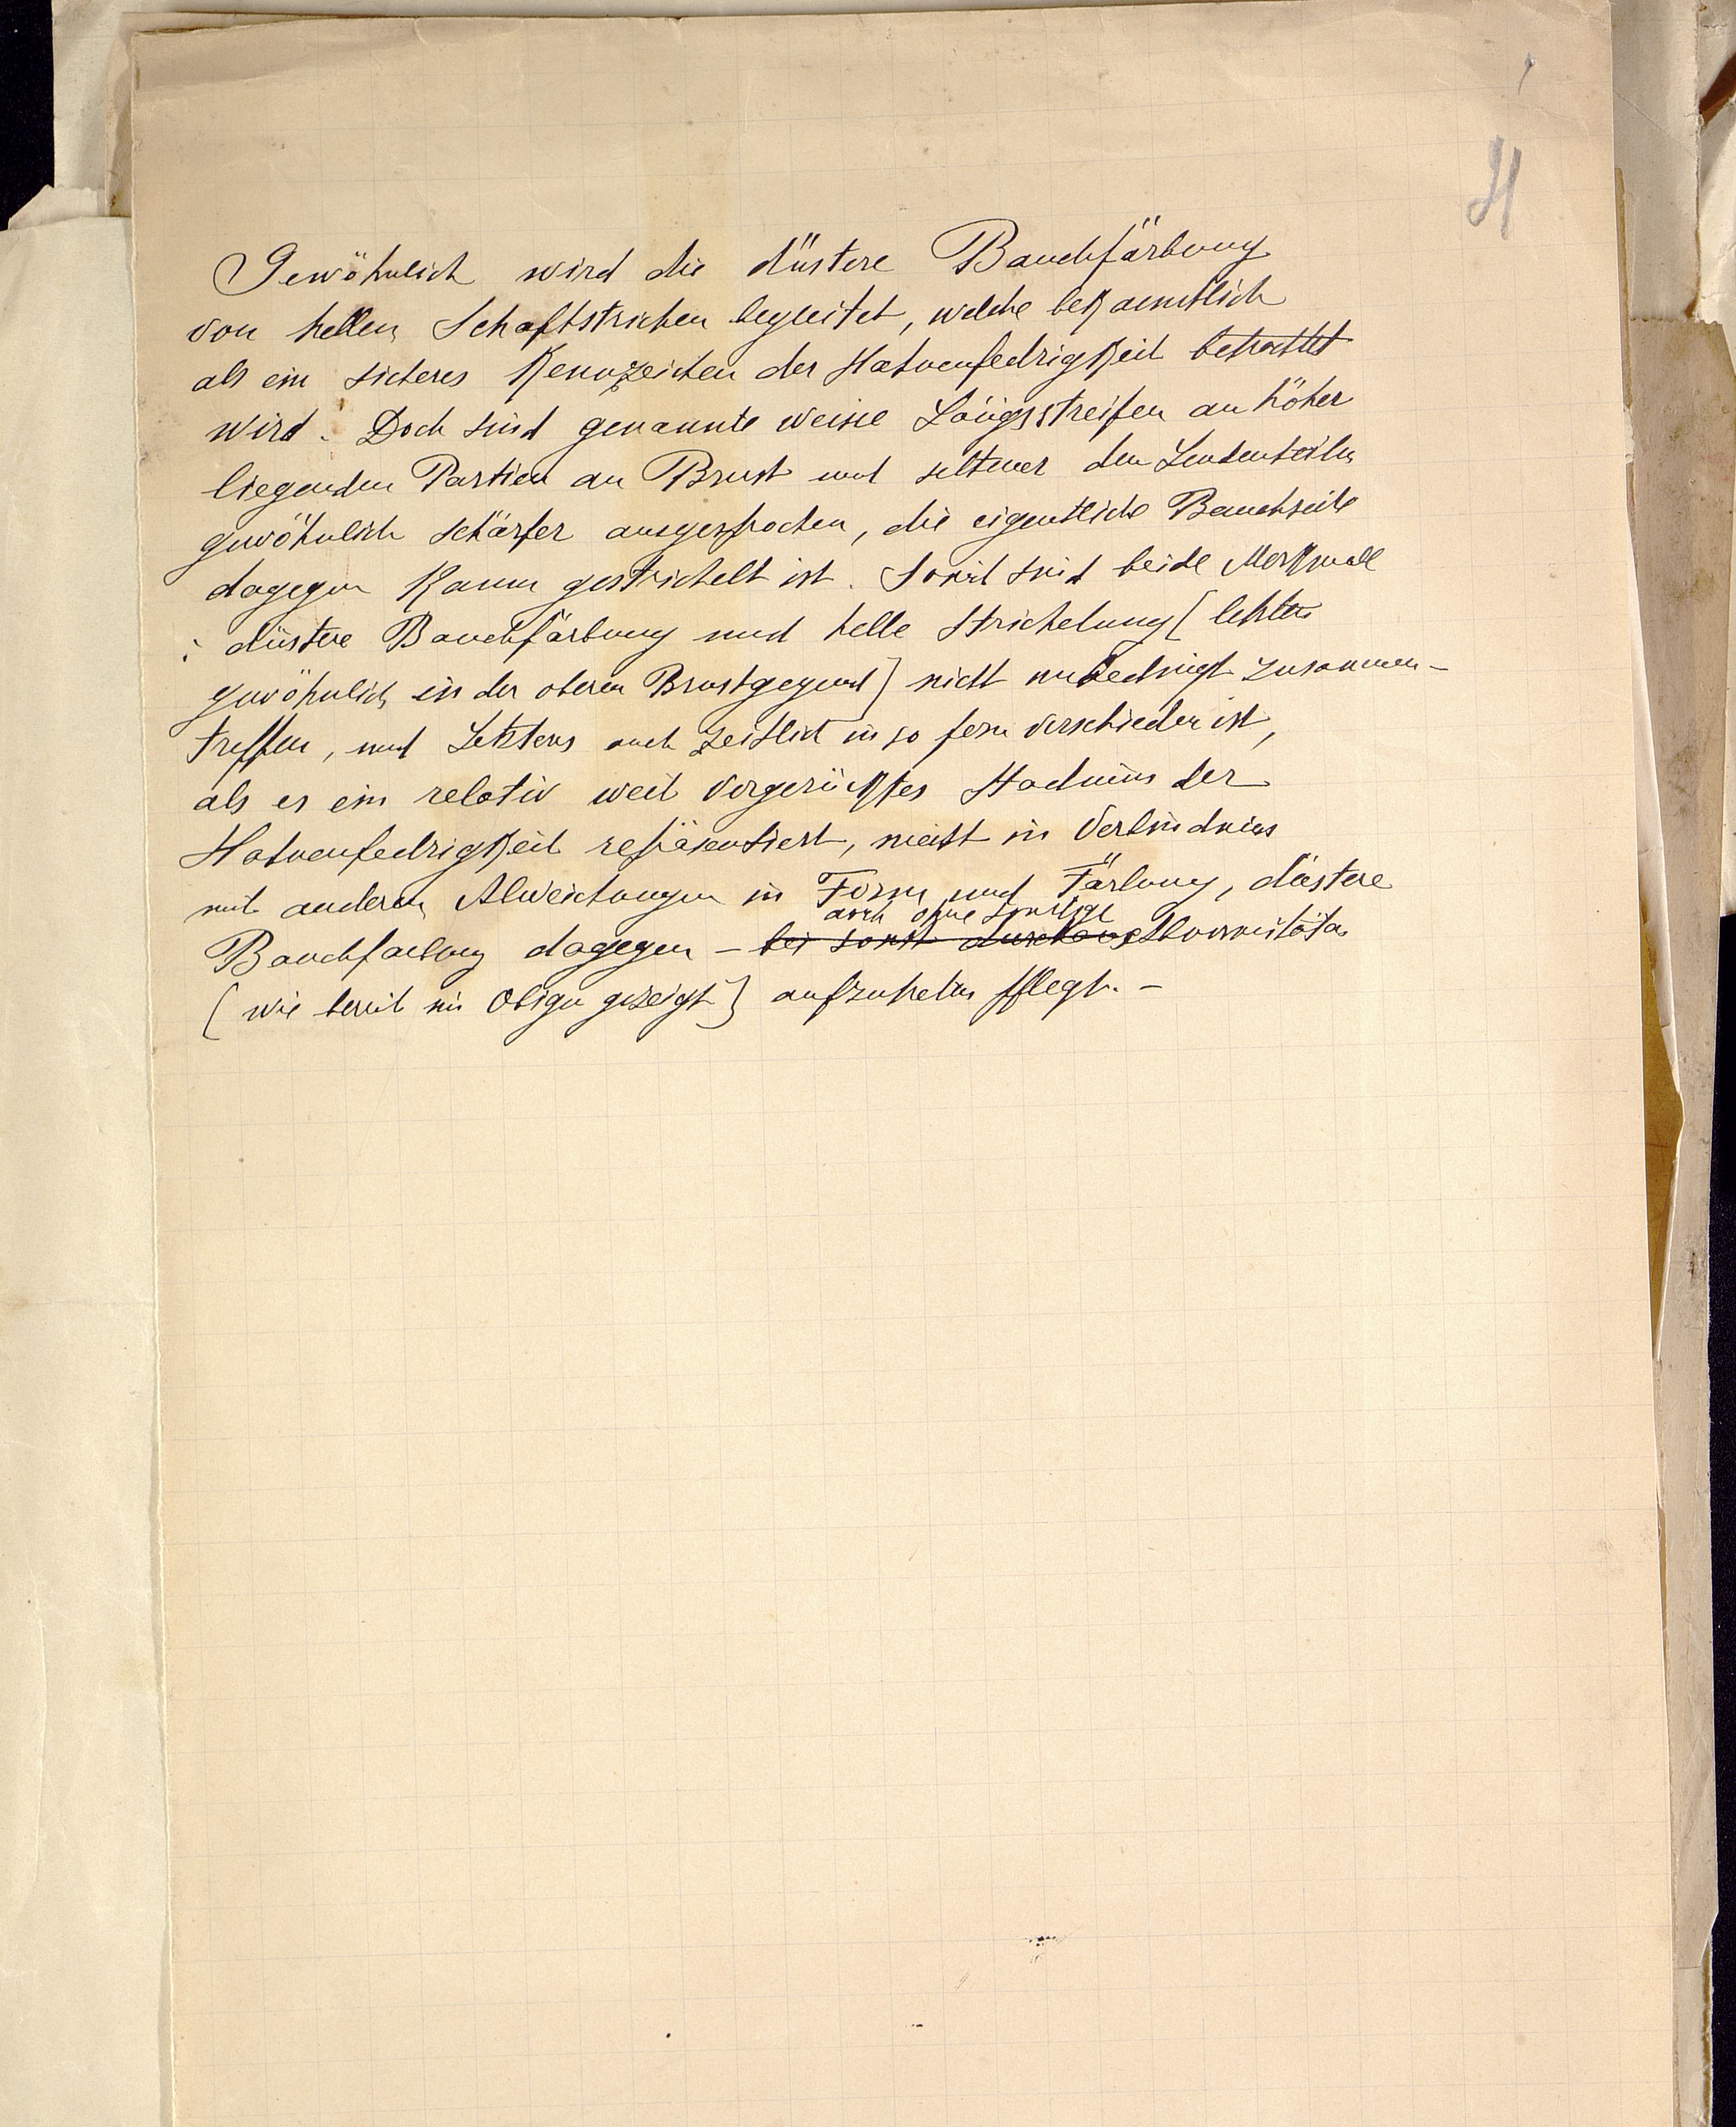 H
Gewöhnlich wird die düstere Bauchfärbung
von hellen Schaftstrichen begleitet, welche bekanntlich
als ein sicheres Kennzeichen der Hahnenfedrigkeit betrachtet
wird. Doch sind genannte weisse Längsstreifen an höher
liegenden Partien an Brust und seltener den Lendenteilen
gewöhnlich schärfer ausgesprochen, die eigentliche Bauchseite
dagegen kaum gestrichelt ist. Somit sind beide Merkmale
: düstere Bauchfärbung und helle Strichelung [letztere
gewöhnlich in der oberen Brustgegend] nicht unbedingt zusammen-
treffen, und Letzteres auch zeitlich in so fern verschieden ist,
als es ein relativ weit vorgerücktes Stadium der
Hahnenfedrigkeit repräsentiert, meist in Verbindniss
mit anderen Abweichungen in Form und Färbung, düstere
auch ohne sonstige
Bauchfärbung dagegen – bei sonst durchaus Abnormitäten
[wie bereits im Obigen gezeigt] aufzutreten pflegt. –